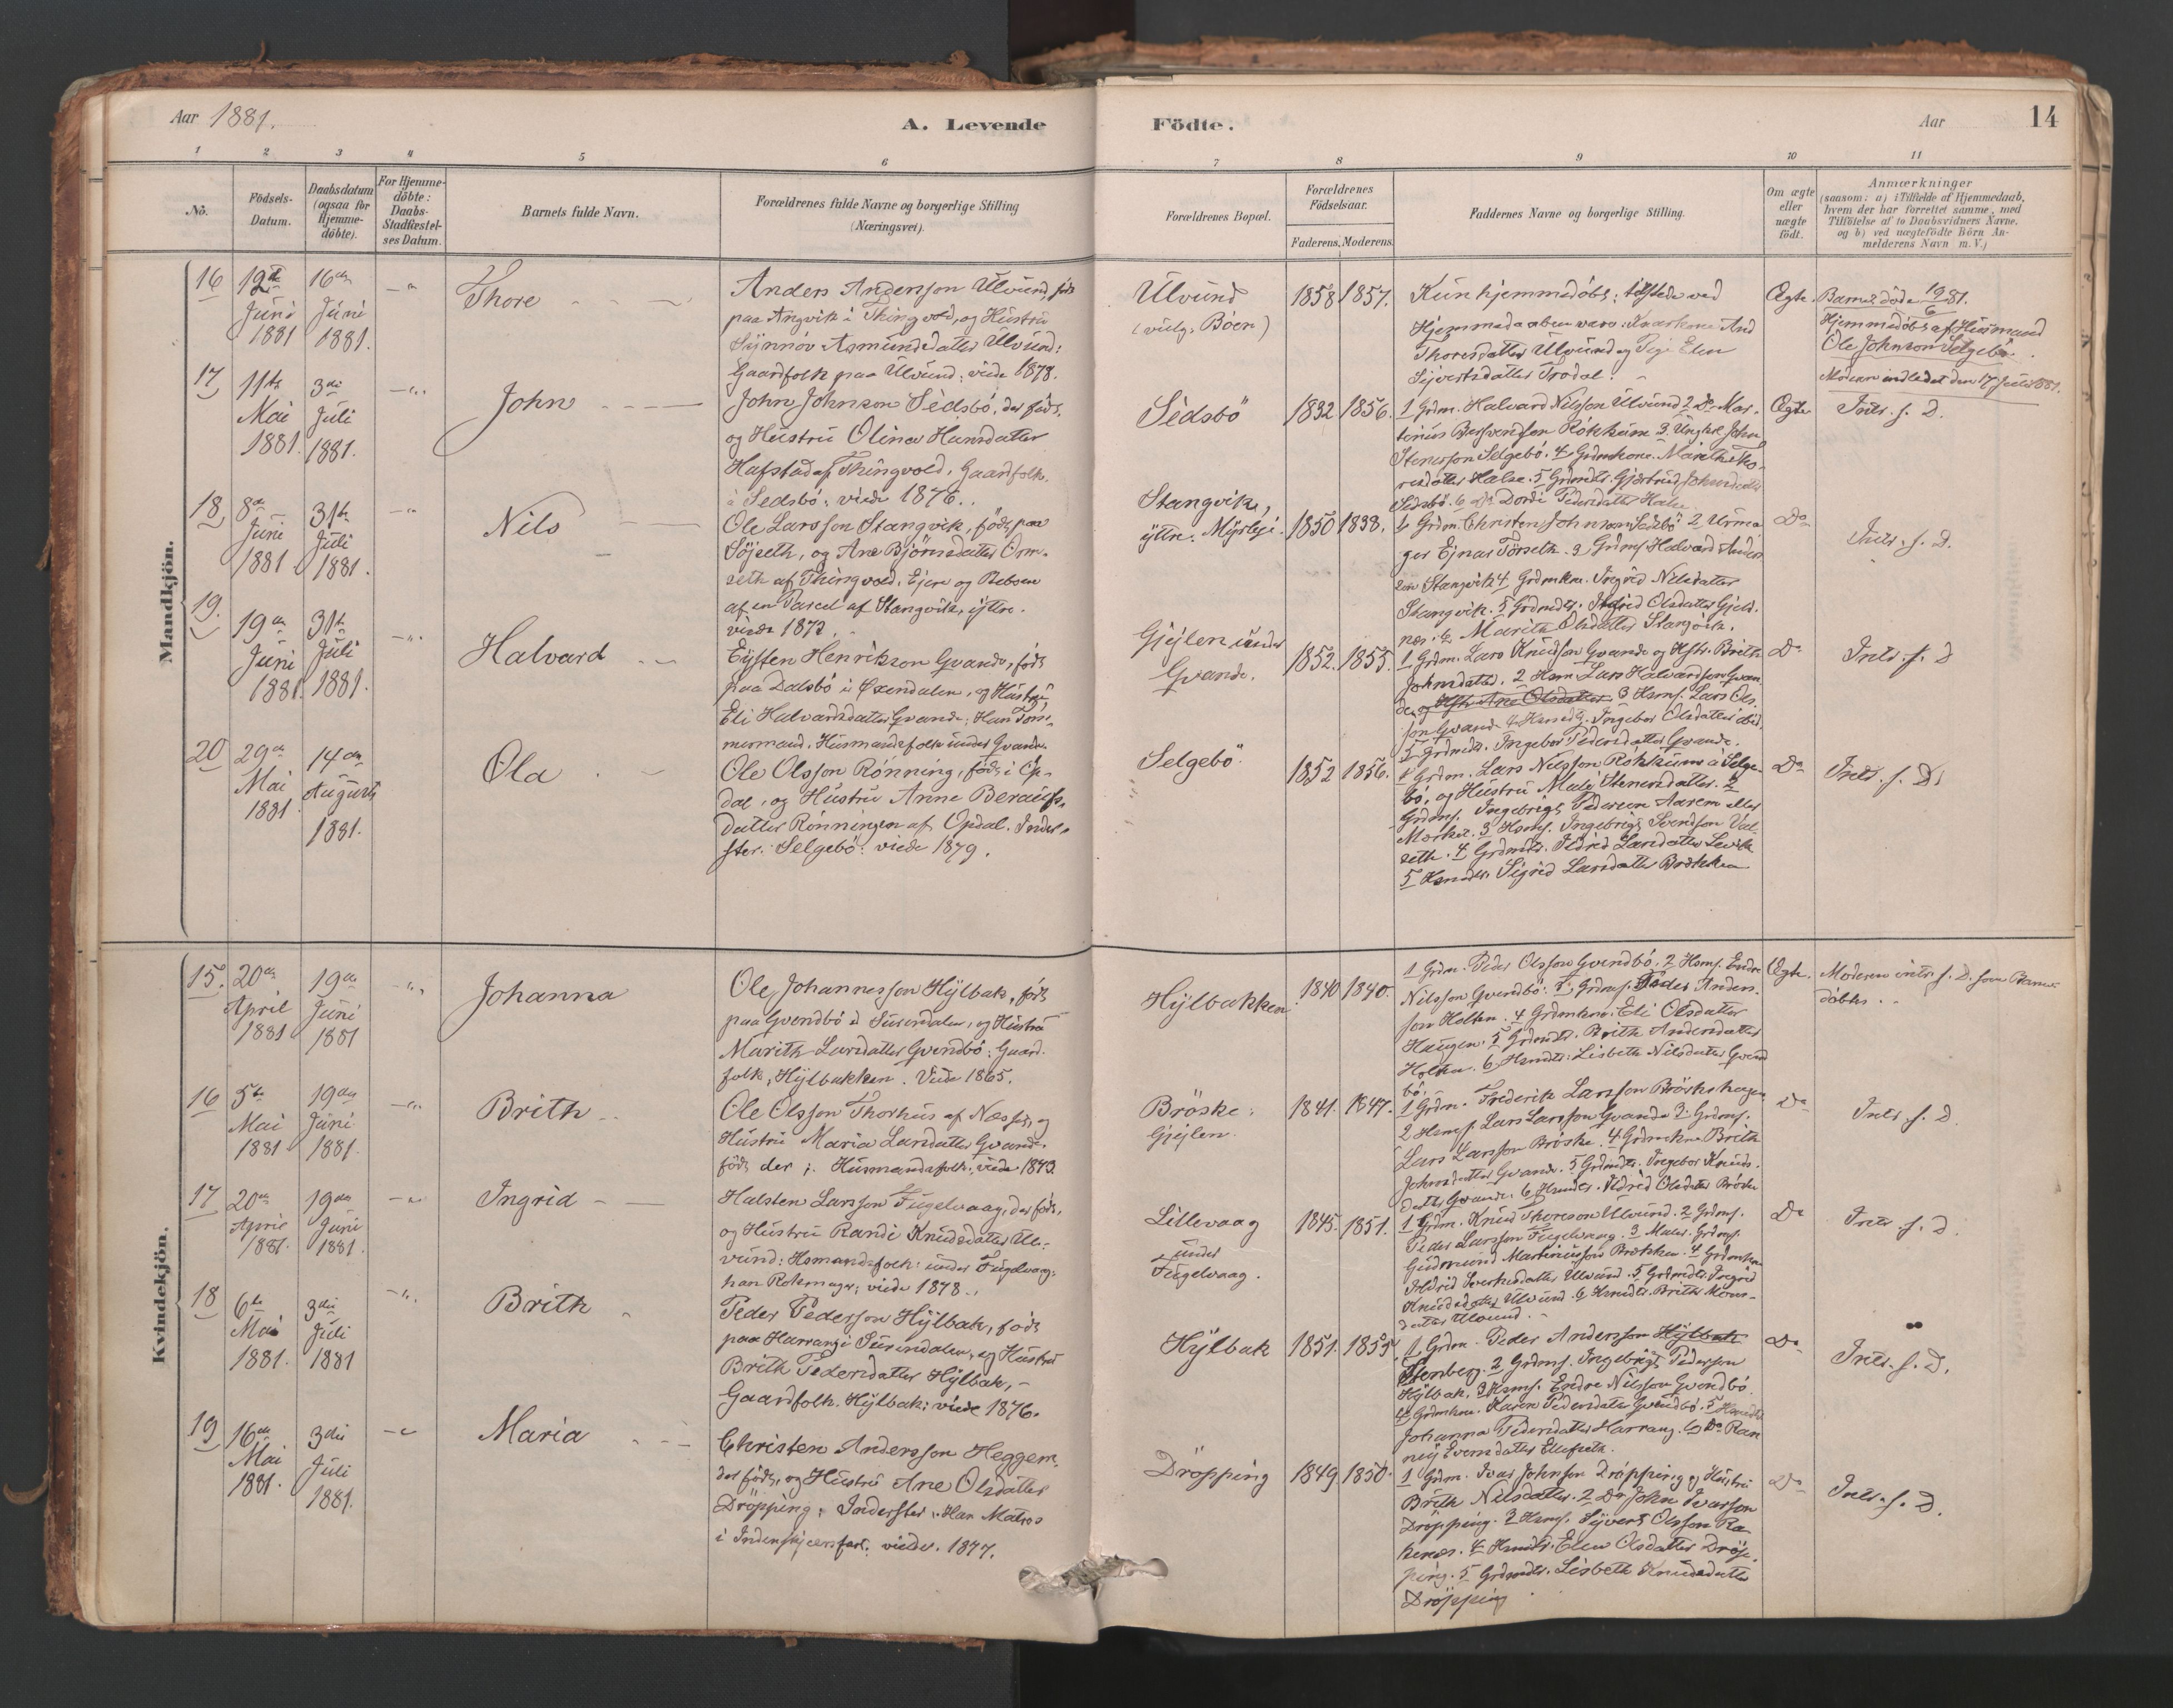 Aar 1881.
A. Levende
Födte.
Aar
14
1 2 3 4 5 6 7 8 9 10 11
No.
Födsels-Datum.
Daabsdatum (ogsaa for Hjemme-döbte).
For Hjemme-döbte: Daabs-Stadfæstel-ses Datum.
Barnets fulde Navn.
Forældrenes fulde Navne og borgerlige Stilling (Næringsvei).
Forældrenes Bopæl.
Forældrenes Födselsaar.
Faderens. Moderens.
Faddernes Navne og borgerlige Stilling.
Om ægte eller uægte födt.
Anmærkninger
(saasom: a) i Tilfælde af Hjemmedaab,
hvem der har forrettet samme, med
Tilföielse af to Daabsvidners Navne,
og b) ved uægtefödte Börn An-
melderens Navn m. V.)
Mandkjön.
16
12te Juni 1881
16de Juni 1881.
Thore
Anders Andersson Ulvund, föds
paa Angvik i Thingvold, og Hustru
Synnöv Asmundsdatter Ulvund:
Gaardfolk paa Ulvund: viede 1878.
Ulvund
(vulg. Böen)
1858 1857.
Kun hjemmedöbt: tilstede ved
Hjemmedaaben vare:
Thoresdatter Ulvund og Pige Elen
Sivertsdatter Trodal.
Ægte.
Barnet döde 19/6 81.
Hjemmedöbt af Husmand
Ole Johnson Selgebö.
Moderen indledet den 17 Juli 1881.
17
11te Mai 1881.
3die Juli 1881.
John
John Johnson Sedsbö, der föds,
og Hustru Olina Hansdatter
Hafstad af Thingvold, Gaardfolk
à Sedsbö: viede 1876.
Sedsbö
1832 1856.
1 Grdm. Halvard Nilsson Ulvund 2 Do Mar-
tinius Rokkum 3 Ungkl John
Stenersson Selgebö. 4 Grdmkone Marith
datter Halse. 5 Grdmdtr. Gjertrud Johnsdatter
Sedsbö. 6 Dordi Pedersdatter Halse.
Ægte
Intr. s. D.
18
8de Juni 1881
31te Juli 1881.
Nils
Ole Larsson Stangvik, föds paa
Söjseth, og Ane Björnsdatter Orm-
seth af Thingvold, Ejere og Beboere
af en Parcel af Stangvik, ýttre.
viede 1872.
Stangvik,
ýttre. Myrleje.
1850 1838.
1 Grdm. Christen Johnson Sedsbö 2 Urma-
ger Ejnar Törseth. 3 Grdms. Halvard Anders-
son Stangvik 4 Grdmkne. Ingrid Nilsdatter
Stangvik. 5 Grdmdtr. Ingrid Olsdatter Gjeld-
næs. 6 Marith Olsdatter Stangvik.
Do
Intr. s. D.
19.
19de Juni 1881.
31te Juli 1881.
Halvard
Eysten Henrikson Gvande, föds
paa Dalsbö i Öxendalen, og Hustru
Eli Halvardsdatter Gvande; Han Töm-
mermand. Husmandsfolk under Gvande.
Gjejlen under
Gvande.
1852. 1855.
1 Grdm. Lars Knudson Gvande og Hstr. Brith
Johnsdatter. 2 Hsm Lars Halvardson Gvan-
de, og Hstr. Ane Olsdatter 3 Hsms. Lars Ols-
son Gvande 4 Hsmdtr. Ingebor Olsdatter ibid
5 Grdmdtr. Ingebor Pedersdatter Gvande.
Do
Intr. s. D
20
29de Mai 1881.
14de August 1881.
Ola
Ole Olsson Rönning, föds i Op-
dal, og Hustru Anne
datter Rönningen af Opdal. Inder-
ster. Selgebö: viede 1879.
Selgebö.
1852 1856.
1 Grdm. Lars Nilsson Rokkum à Selge-
bö, og Hustru Mali Stenersdatter. 2
Grdms. Ingebrigt Pedersen Aasem eller
Marken. 3 Hsms. Ingebrigt Svendson Val-
seth. 4 Grdmdtr. Ildrid Larsdatter
5 Hsmdtr. Sigrid Larsdatter Brækken
Do
Intr. s. D.
Kvindekjön.
15.
20de April 1881
19de Juni 1881
Johanna
Ole Johannesson Hýlbak, föds
paa Gvendbö i Surendalen, og Hustru
Marith Larsdatter Gvendbö: Gaard-
folk, Hýlbakken. Viede 1865.
Hýlbakken
1840 1840.
1 Grdm. Peder Olsson Gvendbö, 2 Hsms. Endre
Nilsson Gvendbö. 3 Grdms. Peder Anders-
son Holten. 4 Grdmkne. Eli Olsdatter
Haugen. 5 Grdmdtr. Brith Andersdatter
Holten. 6 Hsmdtr. Lisbeth Nilsdatter Gvend
bö.
Ægte.
Moderen intr. s. D. som Barnet
döbtes.
16
5te Mai 1881
19de Juni 1881.
Brith
Ole Olsson Thorhus af Nesset, og
Hustru Maria Larsdatter Gvande,
föds der; Husmandsfolk. viede 1843
Bröske:
Gjejlen.
1841. 1847.
1 Grdm. Frederik Larsson Bröskehagen
2 Hsms. Lars Larsson Gvande 3 Grdms.
Lars Larsson Bröske. 4 Grdmkne Brith
Johnsdatter Gvande. 5 Grdmdtr. Ingebor Knuds-
datter Gvande. 6 Hsmdtr. Ildrid Olsdatter Bröske
Do
Intr. s. D.
17
20de April 1881.
19de Juni 1881.
Ingrid
Halsten Larsson Fugelvaag, der föds,
og Hustru Randi Knudsdatter Ul-
vund: Hsmandsfolk: under Fugelvaag:
han Rokmager; viede 1878.
Lillevaag
under
Fugelvaag.
1845. 1851.
1 Grdm. Knud Thoreson Ulvund. 2 Grdms.
Peder Larsson Fugelvaag. 3 Maler. Grdms.
Gudmund Martinusson Brækken 4 Grdmkone
Ildrid Siverksdatter Ulvund. 5 Grdmdtr. Ingrid
Knudsdatter Ulvund. 6 Hsmdtr. Brith Mons-
datter Ulvund.
Do
Intr. s. D.
18
6te Mai 1881.
3die Juli 1881
Brith
Peder Pedersson Hýlbak, föds
paa Harrang i Surendalen, og Hustru
Brith Pedersdatter Hýlbak,
Gaardfolk. Hýlbak: viede 1876.
Hýlbak
1851. 1855
1 Grdm. Peder Andersson Hýlbak
Stenberg. 2 Grdms. Ingebrigt Pederson
Hýlbak. 3 Hsms. Endre Nilsson Gvendbö.
4 Grdmkne. Karen Pedersdatter Gvendbö. 5 Hsmdtr
Johanna Pedersdatter Harrang. 6 Do Ran
neig Evensdatter Ellefseth.
Do
Intr. s. D.
19
16de Mai 1881.
3die Juli 1881.
Maria
Christen Andersson Heggem,
der föds, og Hustru Ane Olsdatter
Dröpping: Inderster. Han Matros
i Indenskjærsfart. viede. 1877.
Dröpping
1849. 1850.
1 Grdm. Ivar Johnson Dröpping og Hustru
Brith Nilsdatter. 2 Do John Ivarson
Dröpping. 3 Hsms. Syvert Olsson Ra-
kenes. 4 Hsmdtr. Elen Olsdatter Dröp-
ping. 5 Grdmdtr. Lisbeth Knudsdatter
Dröpping
Do
Intr. s. D.